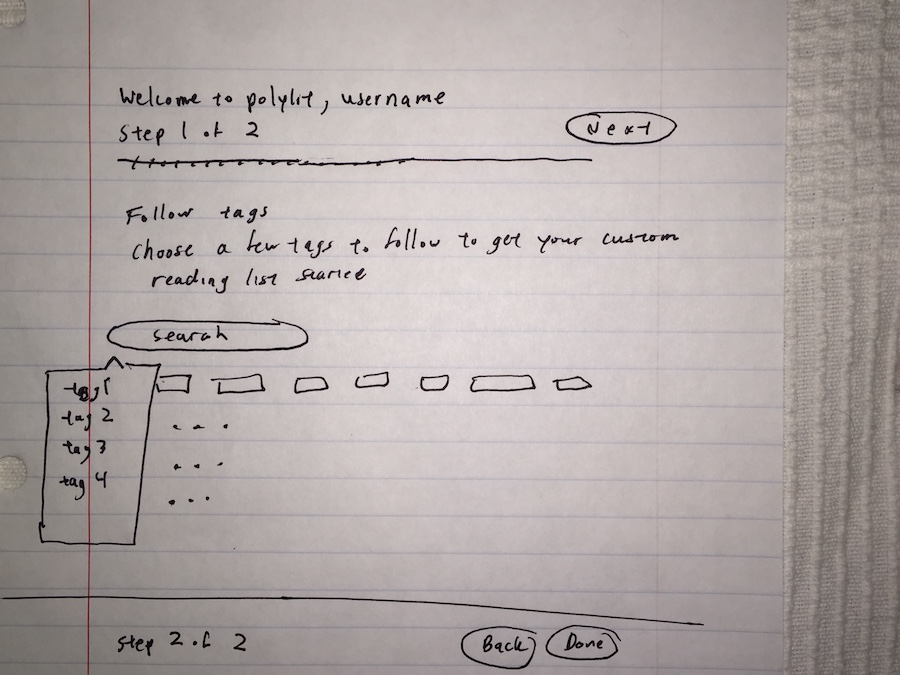 Welcome to polylit, username
Step 1 of 2
Next
Follow tags
Choose a few tags to follow to get your custom
reading list started
search
tag 1
tag 2
tag 3
tag 4
Step 2 of 2
Back
Done